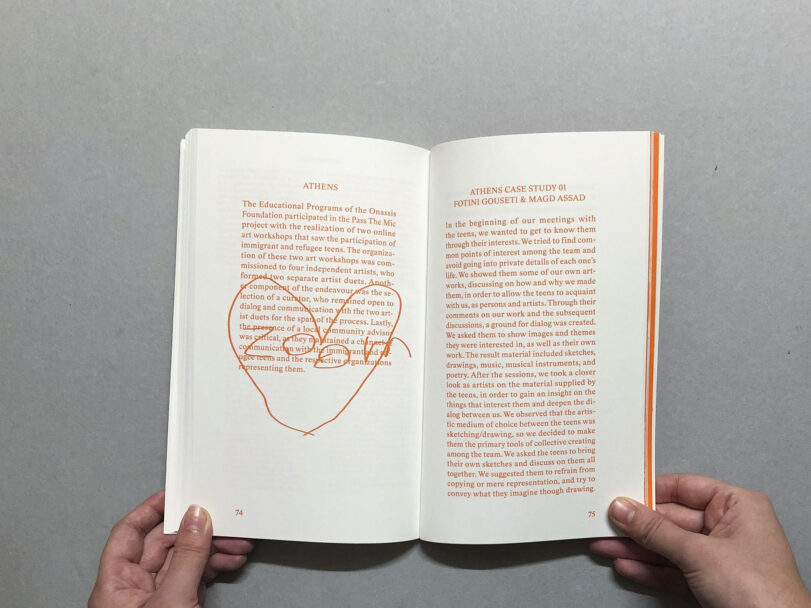 ATHENS
The Educational Programs of the Onassis
Foundation participated in the Pass The Mic
project with the realization of two online
art workshops that saw the participation of
immigrant and refugee teens. The organiza-
tion of these two art workshops was com-
missioned to four independent artists, who
formed two separate artist duets. Anoth-
er component of the endeavour was the se-
lection of a curator, who remained open to
dialog and communication with the two art-
ist duets for the span of the process. Lastly,
the presence of a local community advisor
was critical, as they maintained a channel of
communication with the immigrant and ref-
ugee teens and the respective organizations
representing them.
zoom
74
ATHENS CASE STUDY 01
FOTINI GOUSETI & MAGD ASSAD
In the beginning of our meetings with
the teens, we wanted to get to know them
through their interests. We tried to find com-
mon points of interest among the team and
avoid going into private details of each one's
life. We showed them some of our own art-
works, discussing on how and why we made
them, in order to allow the teens to acquaint
with us, as persons and artists. Through their
comments on our work and the subsequent
discussions, a ground for dialog was created.
We asked them to show images and themes
they were interested in, as well as their own
work. The result material included sketches,
drawings, music, musical instruments, and
poetry. After the sessions, we took a closer
look as artists on the material supplied by
the teens, in order to gain an insight on the
things that interest them and deepen the di-
alog between us. We observed that the artis-
tic medium of choice between the teens was
sketching/drawing, so we decided to make
them the primary tools of collective creating
among the team. We asked the teens to bring
their own sketches and discuss on them all
together. We suggested them to refrain from
copying or mere representation, and try to
convey what they imagine though drawing.
75